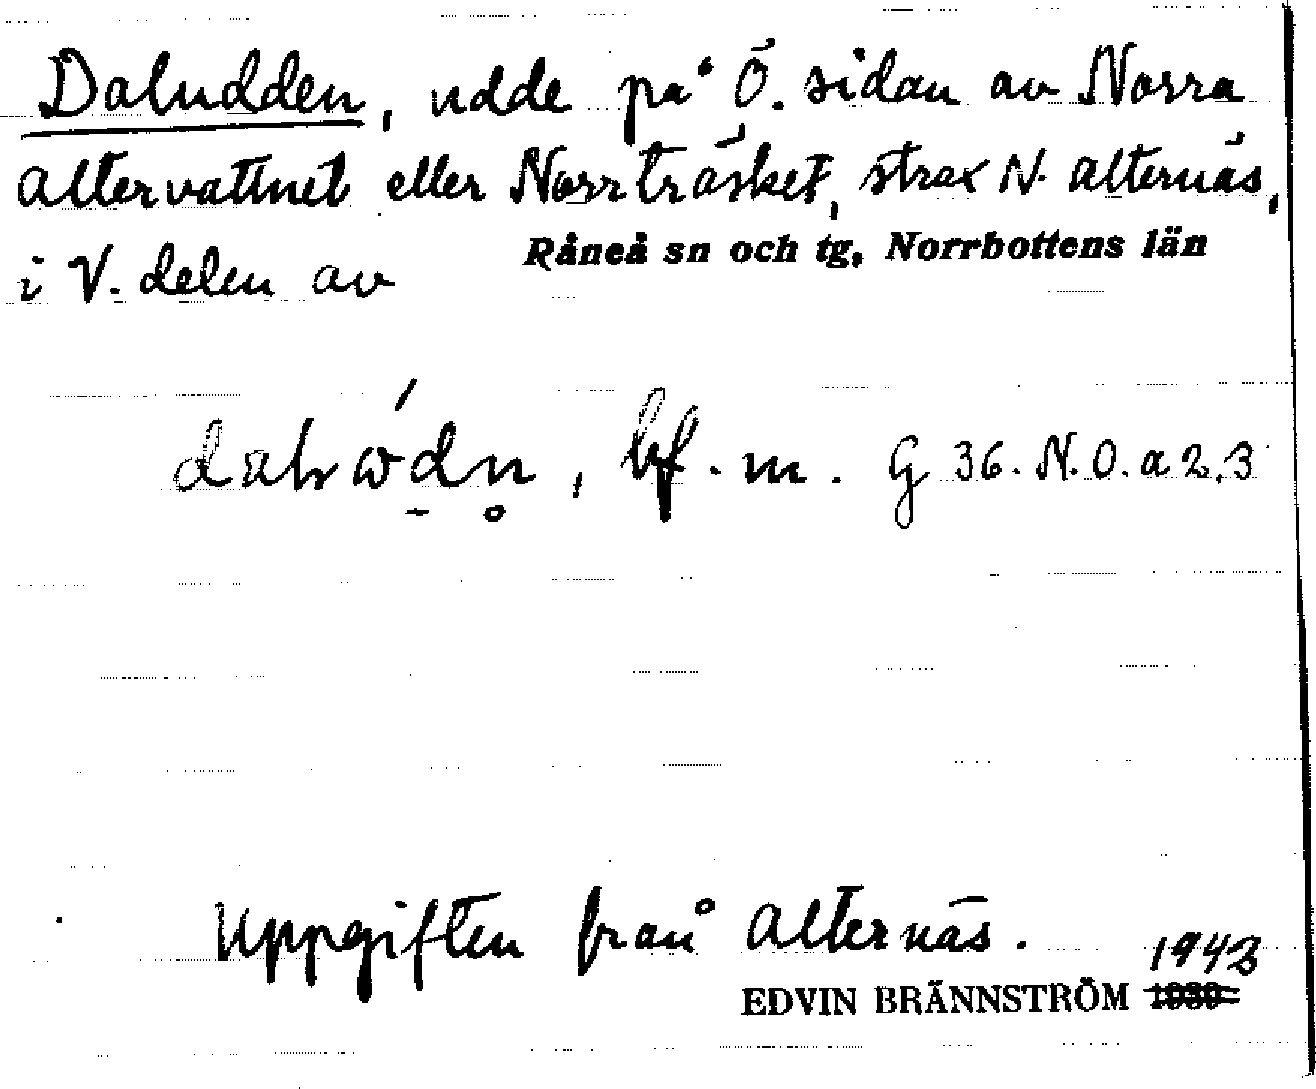 Daludden, udde på Ö. sidan av Norra
Altervattnet eller Norrträsket, strax N. Alternäs,
i V. delen av Råneå sn och tg, Norrbottens län
bf. m. G 36. N.O. a 2,3
Uppgiften från Alternäs.
1943
EDVIN BRÄNNSTRÖM 1930